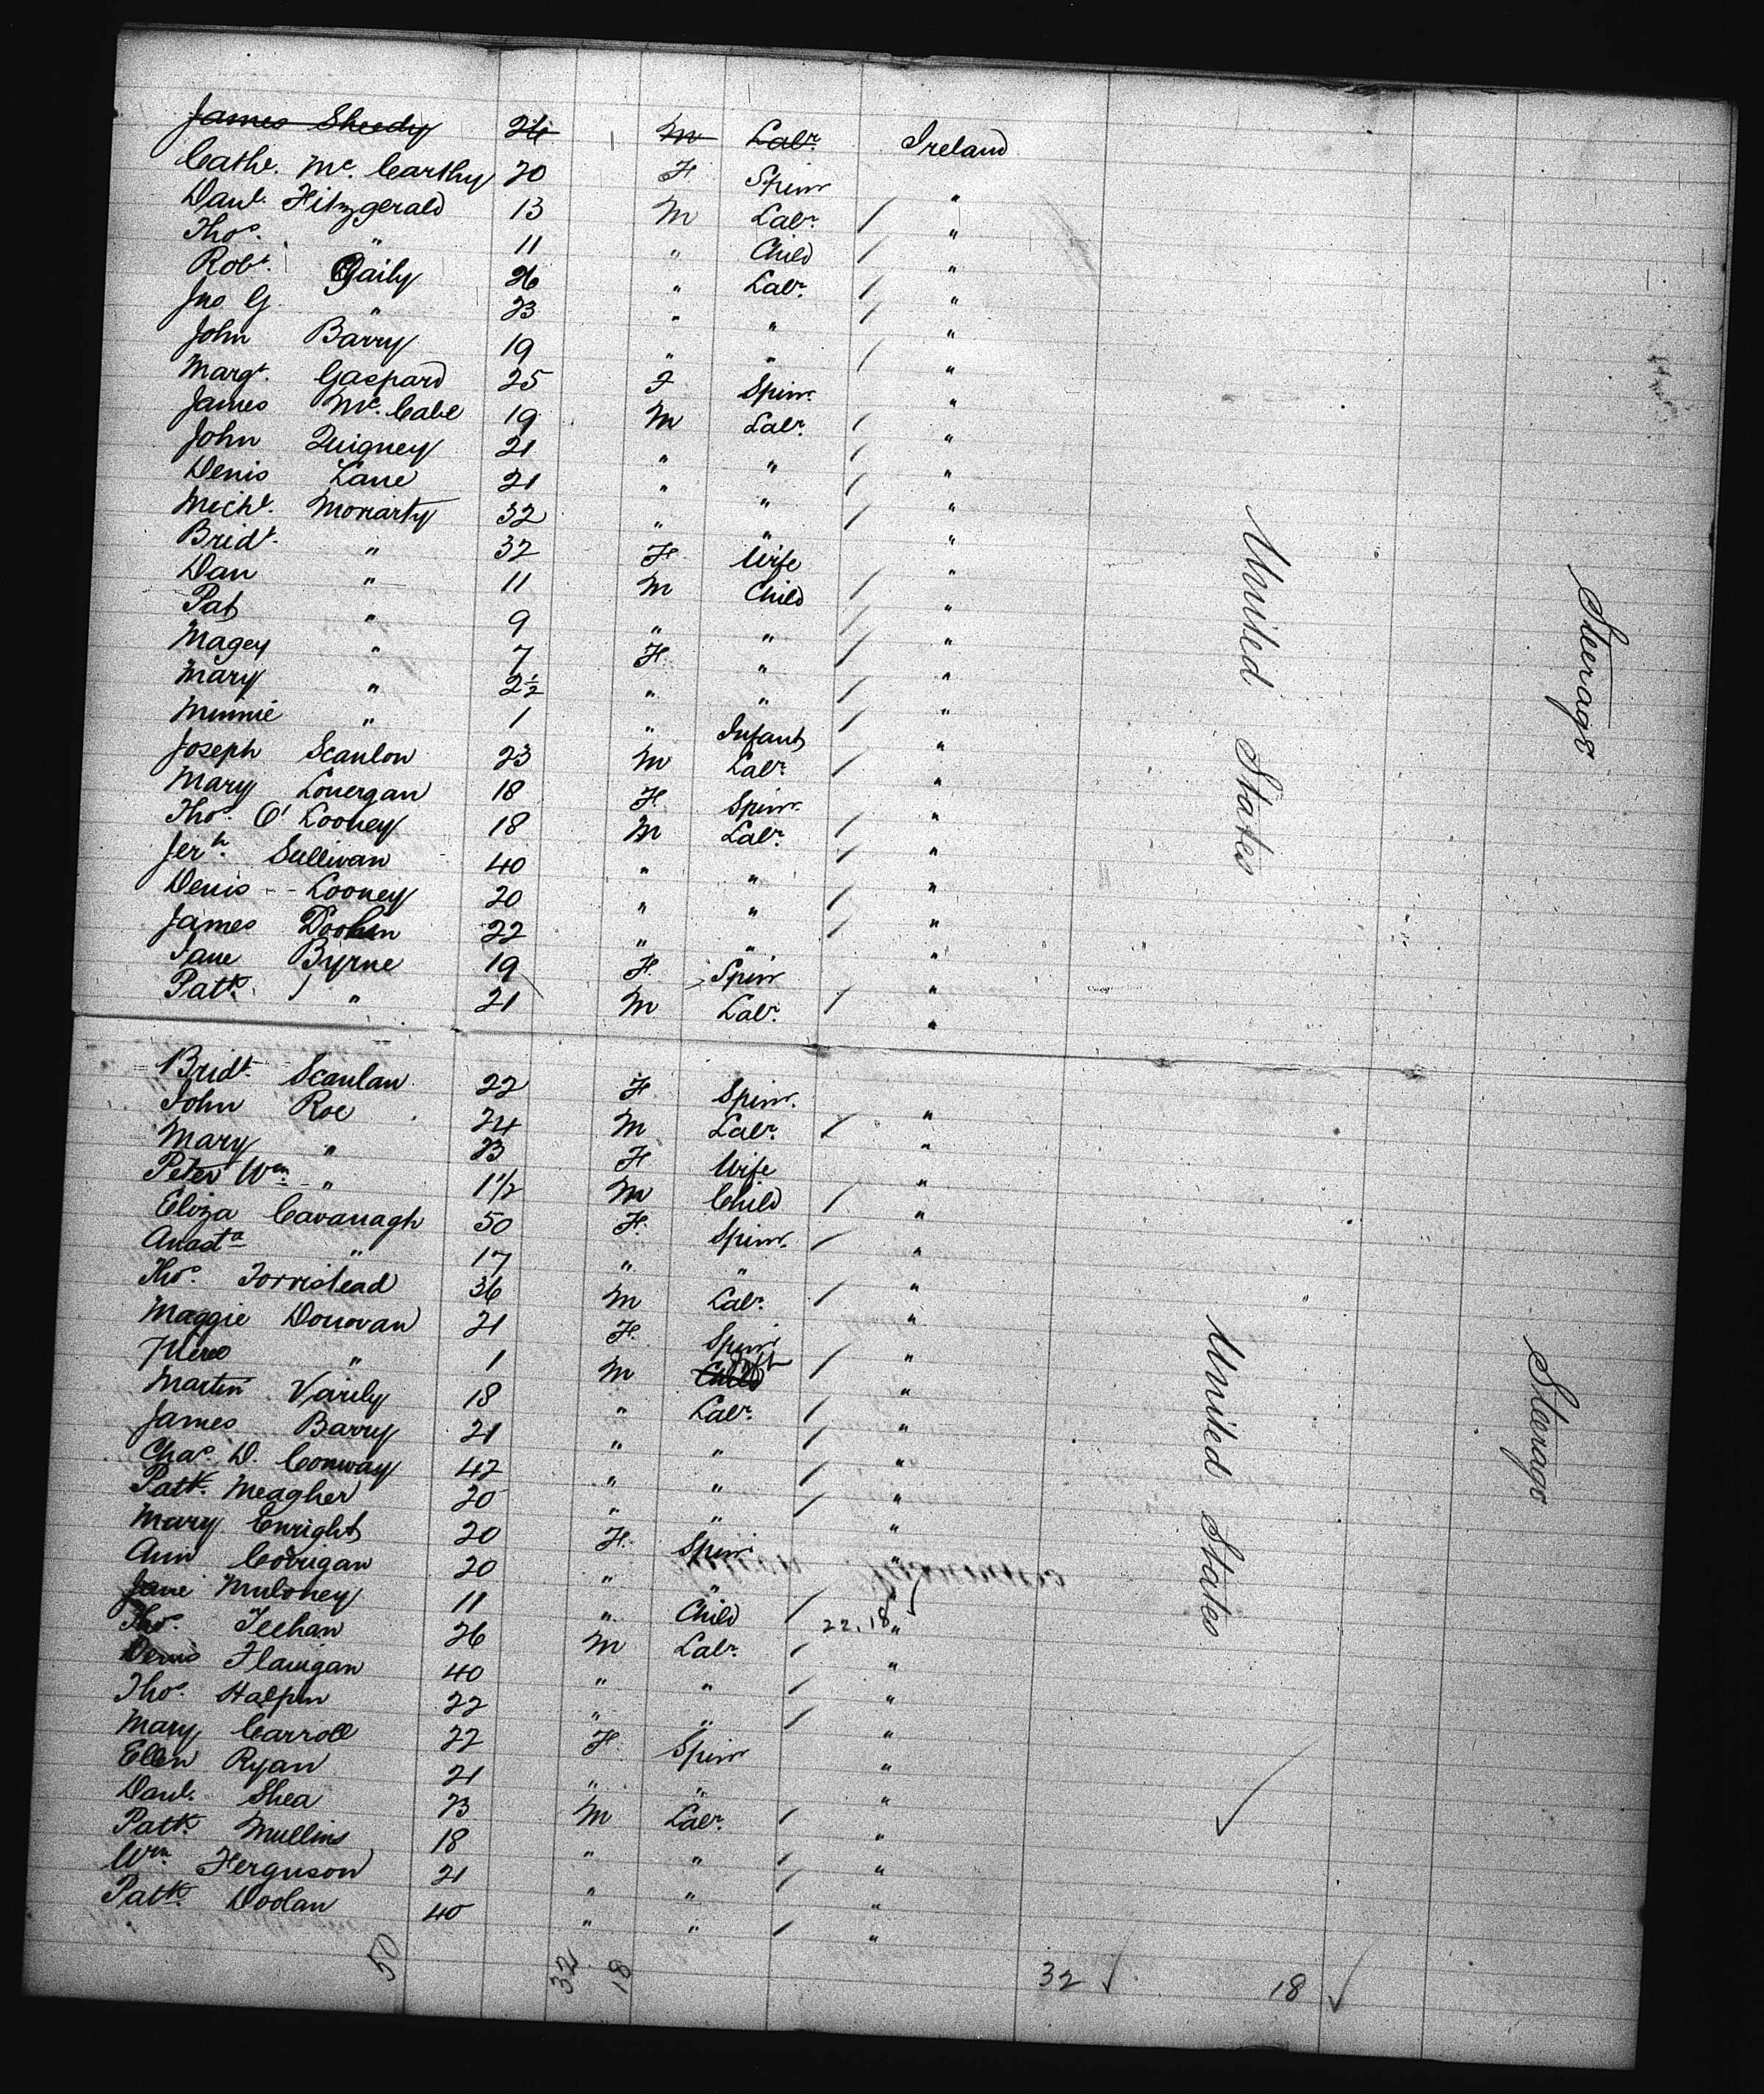 James Sheedy 24 M Labr. Ireland
Cathe. Mc. Carthy 20 F Spinr "
Danl. Fitzgerald 13 M Labr. / "
Thos. " 11 " Child / "
Robt. Daily 26 " Labr. / "
Jno G " 23 " " / "
John Barry 19 " " / "
Margt. Gaspard 25 F Spinr. "
James Mc. Cabe 19 M Labr. / "
John Quigney 21 " " / "
Denis Lane 21 " " / "
Michl. Moriarty 32 " " / "
Bridt. " 32 F Wife "
Dan " 11 M Child / "
Pat " 9 " " / "
Magey " 7 F " / "
Mary " 2 1/2 " " / "
Minnie " 1 " Infant / "
Joseph Scanlon 23 M Labr. / "
Mary Lonergan 18 F. Spinr. "
Thos. O' Looney 18 M Labr. / "
Jerh. Sullivan 40 " " / "
Denis - - Looney 20 " " / "
James 22 " " / "
Jane Byrne 19 F. Spinr "
Patk. " 21 M Labr. / "
United States
Steerage
Bridt. Scanlan 22 F Spinr. "
John Roe 24 M Labr. / "
Mary " 23 F Wife "
Peter Wm. " 1 1/2 M Child / "
Eliza Cavanagh 50 F. Spinr. / "
Anasta " 17 " " "
Thos. Torristead 36 M Labr. / "
Maggie Donovan 21 F. Spinr "
" 1 M Child Inft / "
Martin Varily 18 " Labr. / "
James Barry 21 " " / "
Chas. D. Conway 42 " " / "
Patk. Meagher 20 " " / "
Mary Enright 20 F. Spinr "
Ann Corrigan 20 " " "
Jane Muloney 11 " Child / 22.18 "
Thos. Teehan 26 M Labr. / "
Denis Flanigan 40 " " / "
Thos. Halpin 22 " " / "
Mary Carroll 22 F Spinr "
Ellen Ryan 21 " " "
Danl. Shea 23 M Labr. / "
Patk. Mullins 18 " " / "
Wm. Ferguson 21 " " / "
Patk. Doolan 40 " " / "
United States
Steerage
50 32 18 32 18